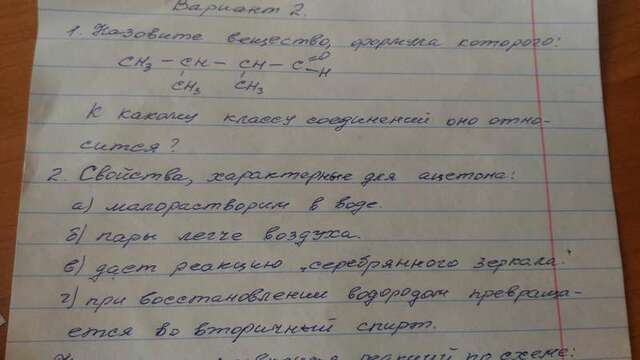 Вариант 2.
1. Назовите вещество, формула которого:
CH₃ – CH – CH – C=O
–H
CH₃ CH₃
К какому классу соединений оно отно-
сится?
2. Свойства, характерные для ацетона:
а) малорастворим в воде.
б) пары легче воздуха.
в) дает реакцию „серебрянного зеркала."
г) при восстановлении водородом превраща-
ется во вторичный спирт.
реакций по схеме: